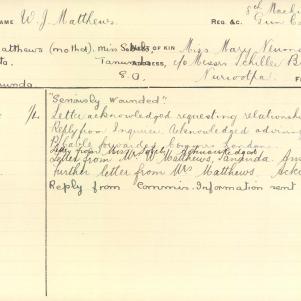 NAME W. J. Matthews. REG. &c. 8th Machi
Gun Co
Matthews (mother), Miss OF KIN Miss Mary Veuno
Tanunda ADDRESS, c/o Messrs Schiller B
unda S.A. Nuriootpa
"Seriously Wounded"
Letter acknowledged requesting relationsh
Reply from Inquirer acknowledged advising
Cable forwarded London
Letter from Miss acknowledged
Letter from Mr W Matthews, Tanunda. Ans
Further letter from Mrs Matthews. Ack
Reply from Commis. Information sent